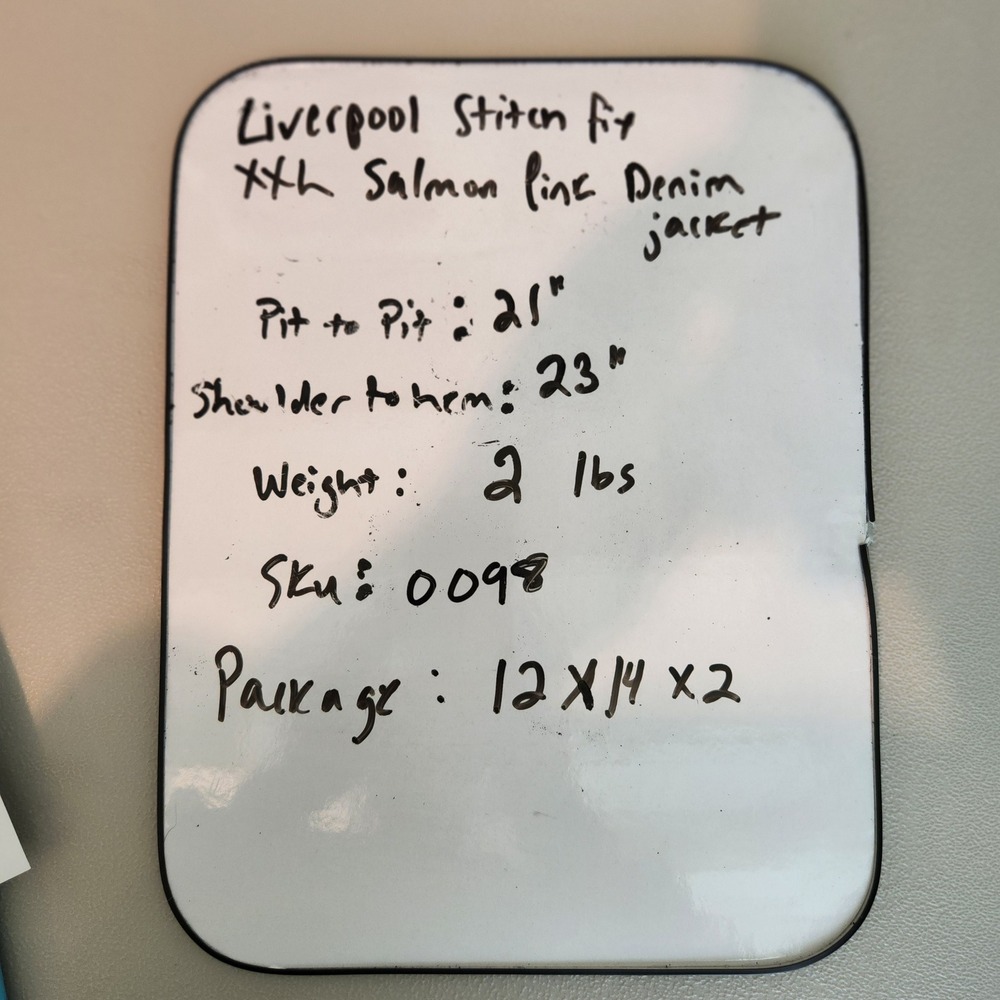 Liverpool Stitch fix
XXL Salmon Pink Denim
jacket
Pit to Pit: 21"
Shoulder to hem: 23"
Weight: 2 lbs
Sku: 0098
Package: 12 X 14 x 2